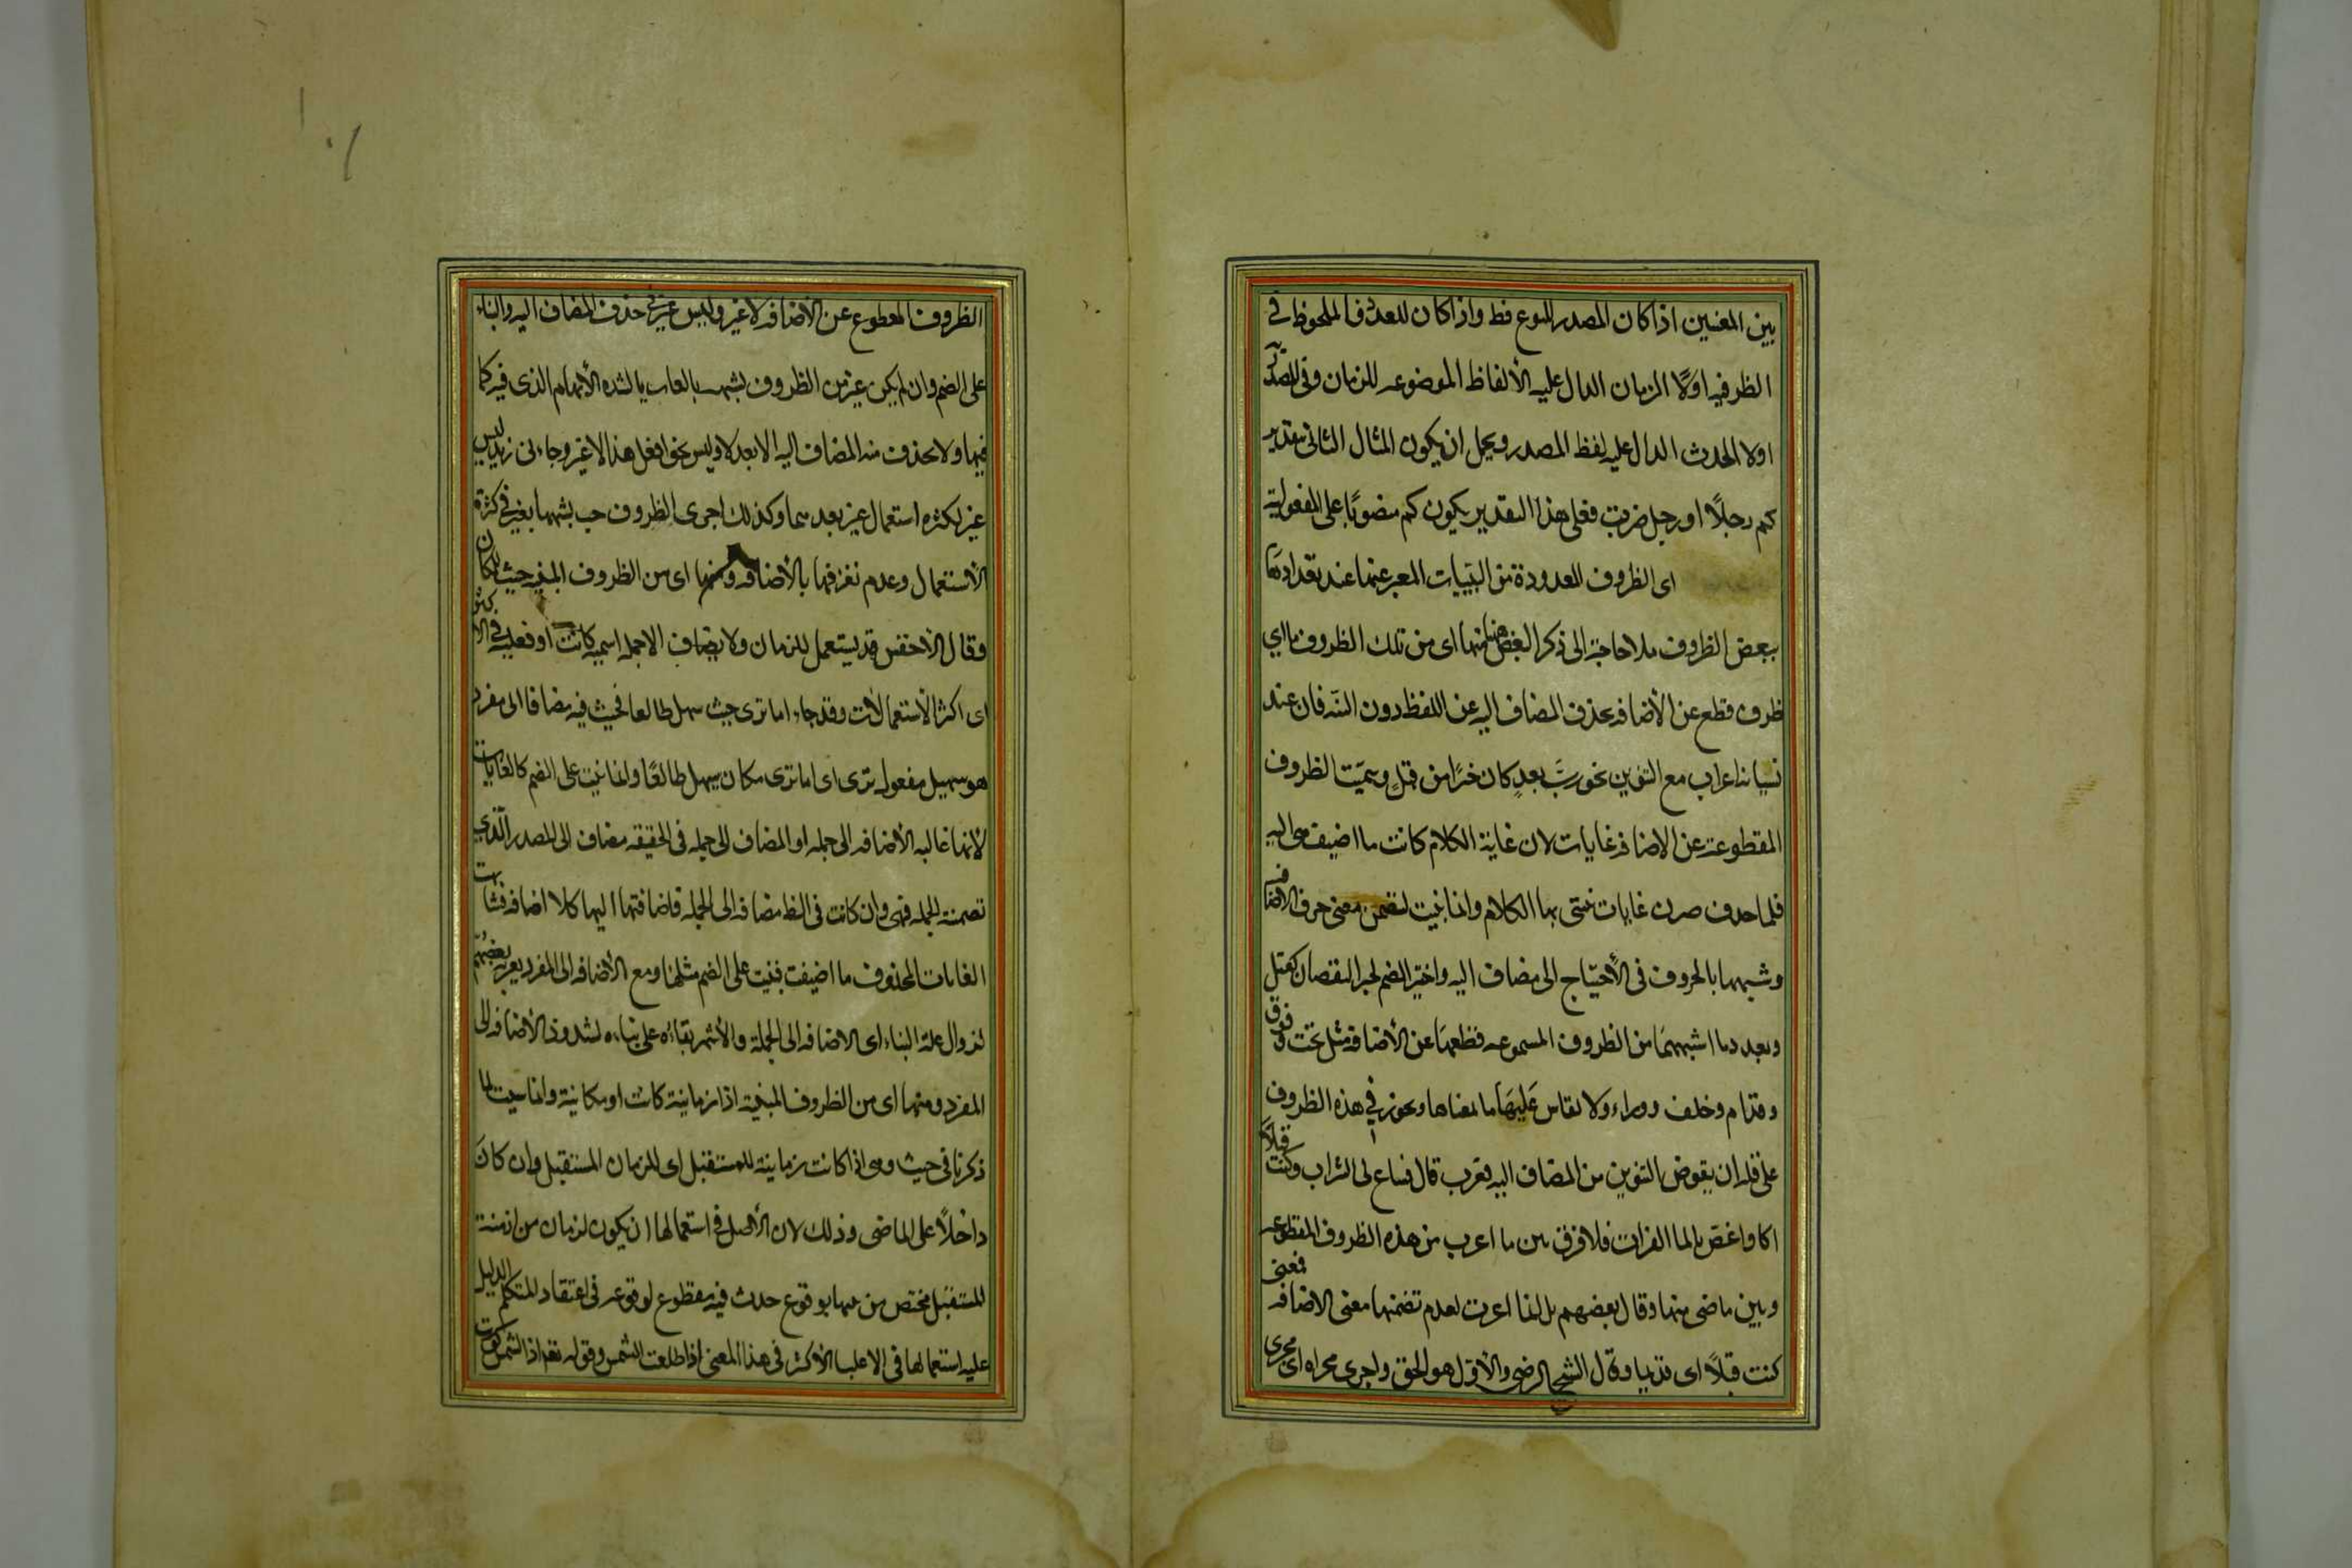 بين المعنيين اذا كان المصدر للنوع فقط واذا كان للعدد فالملحوظ فى
الظرفيه اولًا الزمان الدال عليه الألفاظ الموضوعه للزمان وفى المصدر
اولا الحدث الدال عليه لفظ المصدر ويحمل ان يكون المثال الثانى بتقدير
كم رجلًا او رجل ضربت فعلى هذا التقدير يكون كم منصوبًا على المفعولية
اى الظروف المعدودة من المبنيات المعبر عنها عند تعدادها
ببعض الظروف فلا حاجة الى ذكر البعض هنا منها اى من تلك الظروف ما اي
ظرف قطع عن الأضافه بحذف المضاف اليه عن اللفظ دون النيه فان عند
نسيانه اعراب مع التنوين نحو رب بعدٍ كان خيرًا من قبلٍ وسميت الظروف
المقطوعة عن الاضافه غايات لان غاية الكلام كانت ما اضيفت هى اليه
فلما حذف صرن غايات ينتهى بها الكلام وانما بنيت لتضمن معنى حرف الاضافه
وشبهها بالحروف فى الأحتياج الى مضاف اليه واختير الضم لجبر النقصان كقبل
وبعد وما اشبههما من الظروف المسموعه قطعها عن الأضافة مثل تحت وفوق
وقدام وخلف ووراء ولا يقاس عليها ما بمعناها ويجوز فى هذه الظروف
على قله ان يعوض بالتنوين من المضاف اليه فتعرب قال فساغ لى الشراب وكنت قبلًا
اكاد اغص بالما الفرات فلا فرق بين ما اعرب من هذه الظروف المقطوعه
وبين ما ضى منها وقال بعضهم بل انما اعربت لعدم تضمنها معنى الاضافه فمعنى
كنت قبلًا اى قديما وقال الشيخ الرضى والأول هو الحق واجرى مجراه اى مجرى
الظروف المقطوع عن الأضافه لا غير وليس غير فى حذف المضاف اليه والبناء
على الضم وان لم يكن غير من الظروف لشبهه بالغايات لشده الأبهام الذى فيه كما
فيها ولا يحذف منه المضاف اليه الا بعد لا وليس نحو افعل هذا لا غير وجاءنى زيد ليس
غير لكثره استعمال غير بعدهما وكذلك اجرى الظروف حسب لشبهها بغير فى كثرة
الأستعمال وعدم تعرفها بالأضافه ومنها اى من الظروف المبنيه حيث للمكان
وقال الأخفش قد يستعمل للزمان ولا يضاف الا جمله اسميه كانت او فعليه فى الأكثر
اى اكثر الأستعمالات وقد جاء اما ترى حيث سهيل طالعا فحيث فيه مضافا الى مفرد
هو سهيل مفعول ترى اى اما ترى مكان سهيل طالعًا وانما بنيت على الضم كالغايات
لأنها غالبه الأضافه الى جمله او المضاف الى جمله فى الحقيقه مضاف الى المصدر الذي
تضمنته الجمله فهى وان كانت فى الظ مضافه الى الجمله فاضافتها اليها كلا اضافه فشابهت
الغايات المحذوف ما اضيفت فبنيت على الضم مثلها ومع الأضافه الى المفرد يعربه بعضهم
لزوال علة البناء اى الاضافه الى الجملة والأشهر بقاءه على بناءه لشذوذ الأضافه الى
المفرد ومنها اى من الظروف المبنية اذا زمانية كانت او مكانية وانما بنيت لما
ذكرنا فى حيث وهى اذا كانت زمانية للمستقبل اى للزمان المستقبل وان كان
داخلًا على الماضى وذلك لان الأصل فى استعمالها ان يكون لزمان من ازمنة
المستقبل مختص من بينها بوقوع حدث فيه مقطوع لوقوعه فى اعتقاد المتكلم الدليل
عليه استعمالها فى الاغلب الأكثر فى هذا المعنى اذا طلعت الشمس وقوله تع اذا الشمس كورت